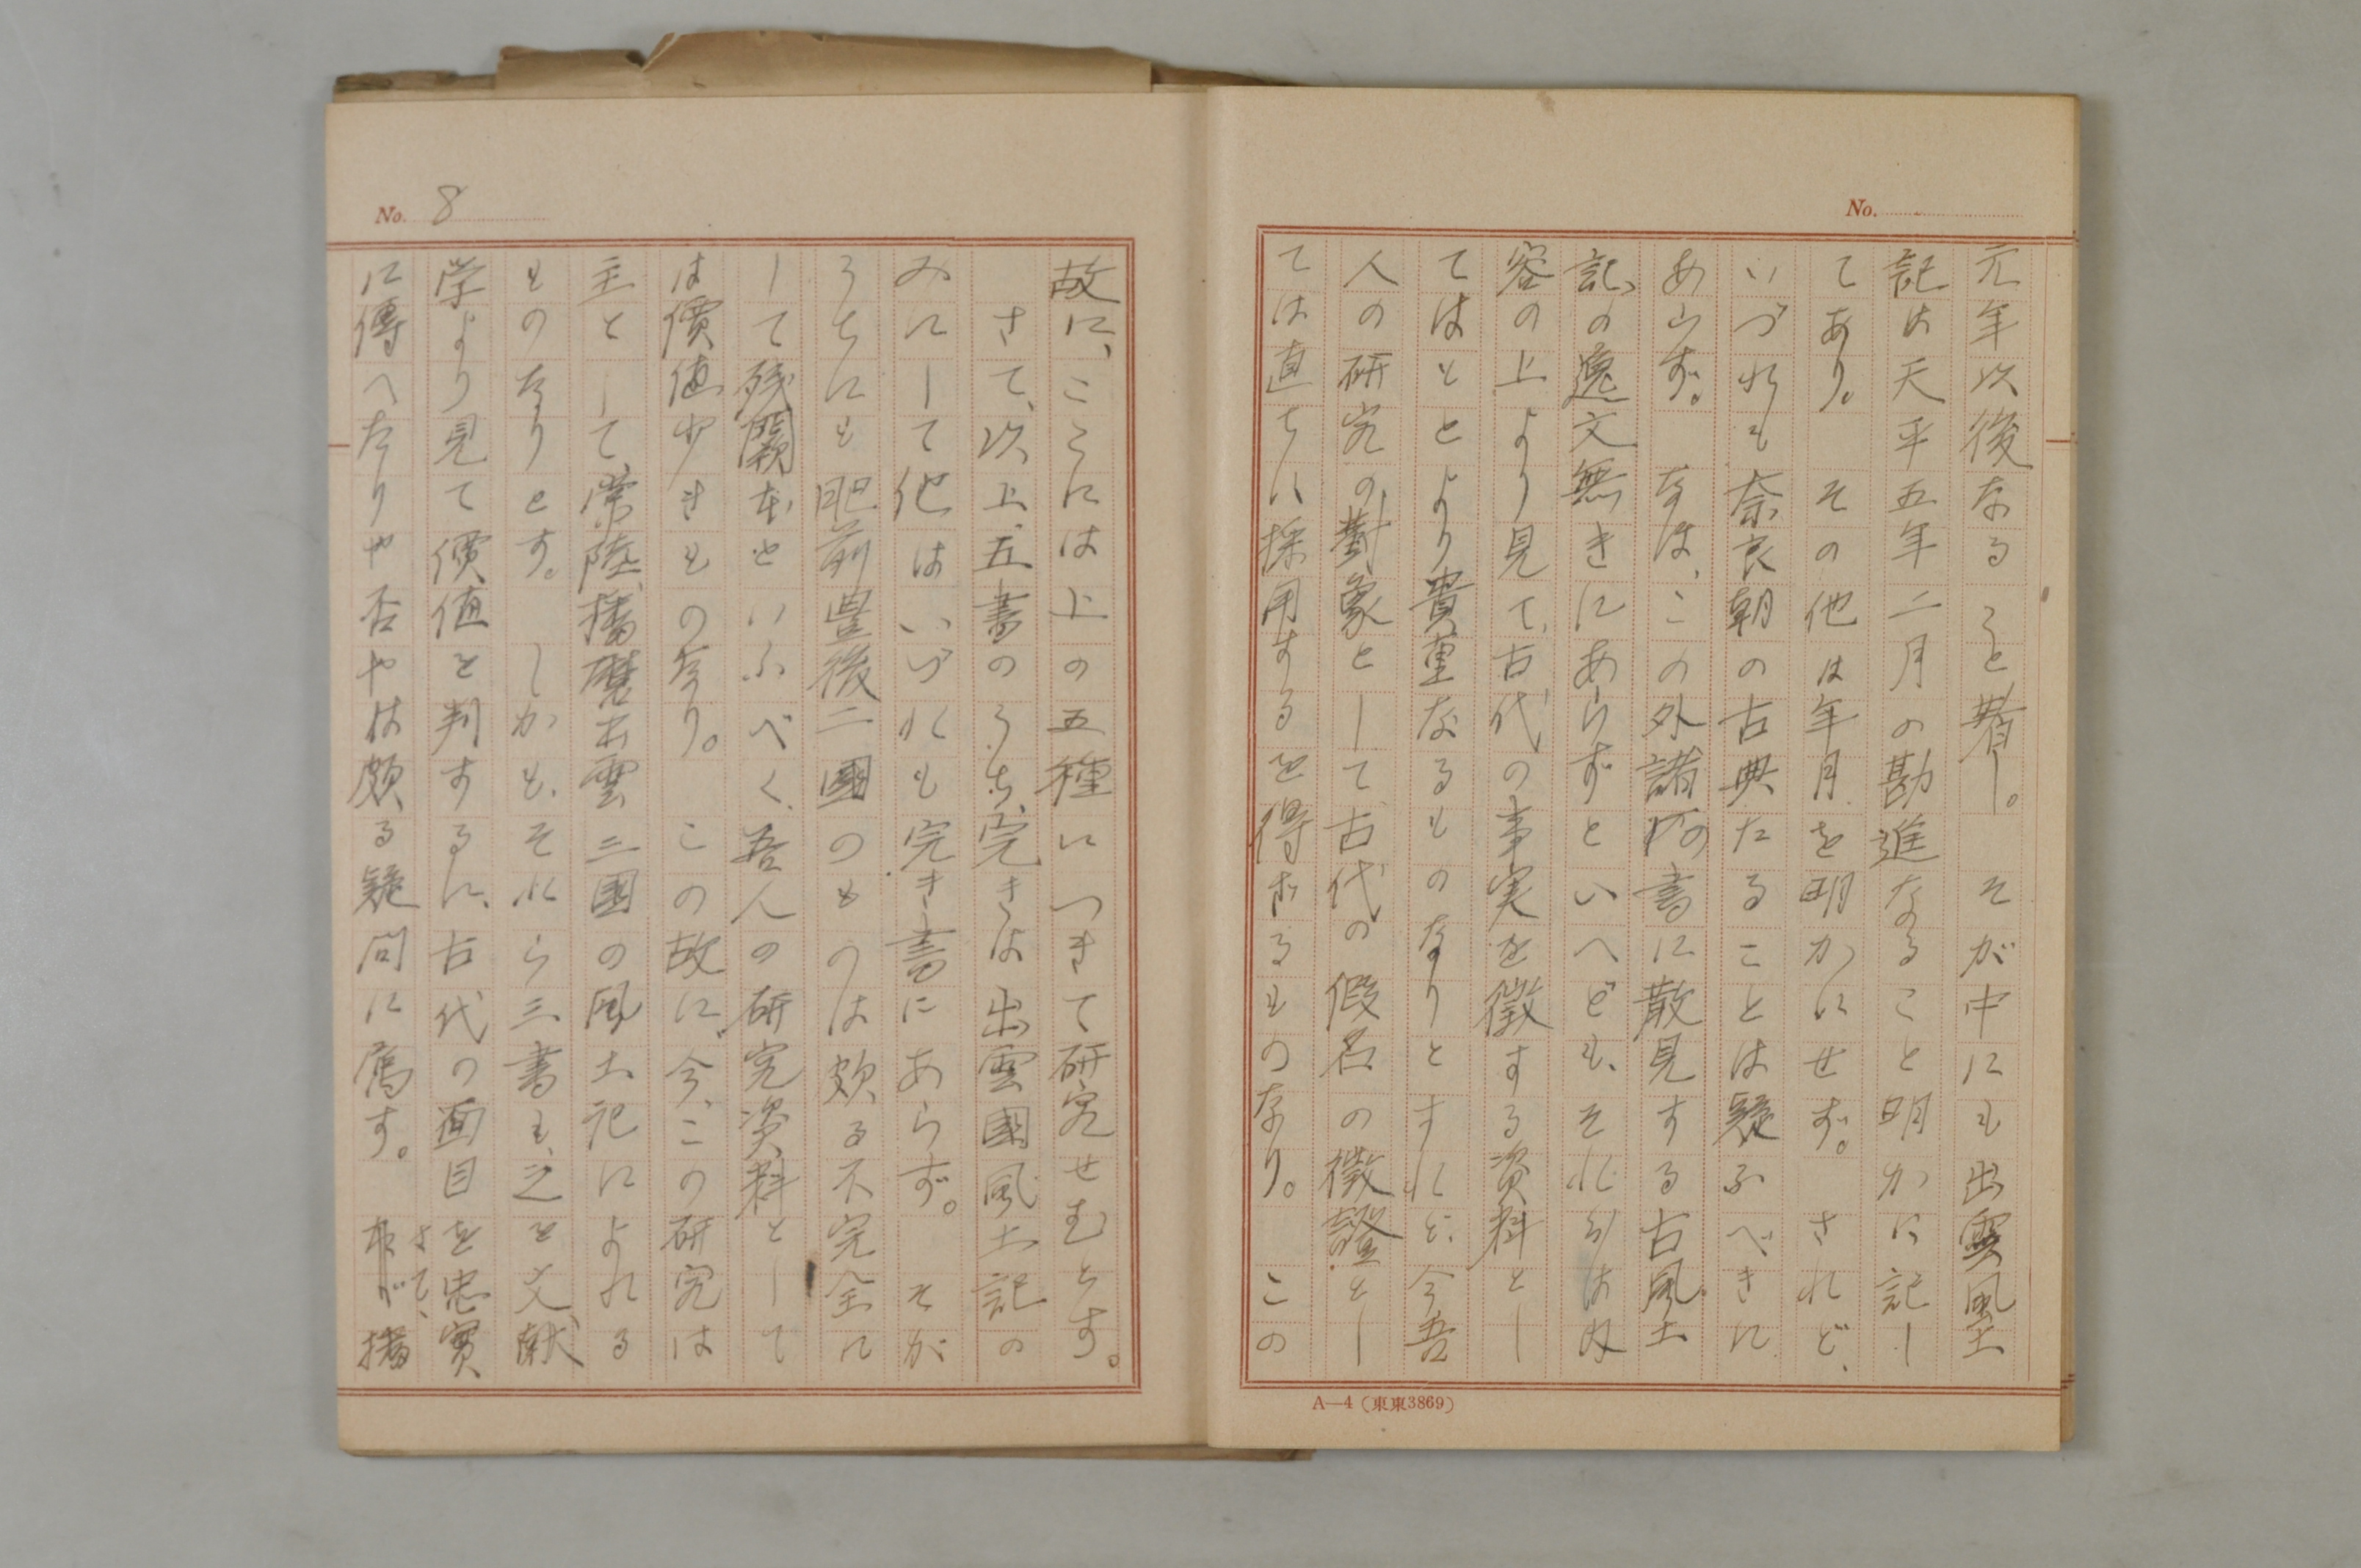 No.
元年以後なること著し。　そが中にも出雲風土
記は天平五年二月の勘進なること明かに記し
てあり。　その他は年月を明かにせず。　されど、
いづれも奈良朝の古典たることは疑ふべきに
あらず。　なほ、この外諸種の書に散見する古風土
記の逸文無きにあらずといへども、それらは内
容の上より見て、古代の事実を徴する資料とし
てはもとより貴重なるものなりとすれど、今吾
人の研究の對象として古代の假名の徴證とし
ては直ちに採用するを得ざるものなり。　この
A—4(東東3869)
No. 8
故に、ここには上の五種につきて研究せむとす。
さて、以上五書のうち、完きは出雲國風土記の
みにして他はいづれも完き書にあらず。　そが
うちにも肥前豊後二國のものは頗る不完全に
して残闕本といふべく、吾人の研究資料として
は價値少きものなり。　この故に、今、この研究は
主として常陸、播磨、出雲三國の風土記によれる
ものなりとす。　しかも、それら三書も、之を文献
学より見て價値を判するに、古代の面目を忠實
に傳へたりや否やは頗る疑問に属す。　さて、播